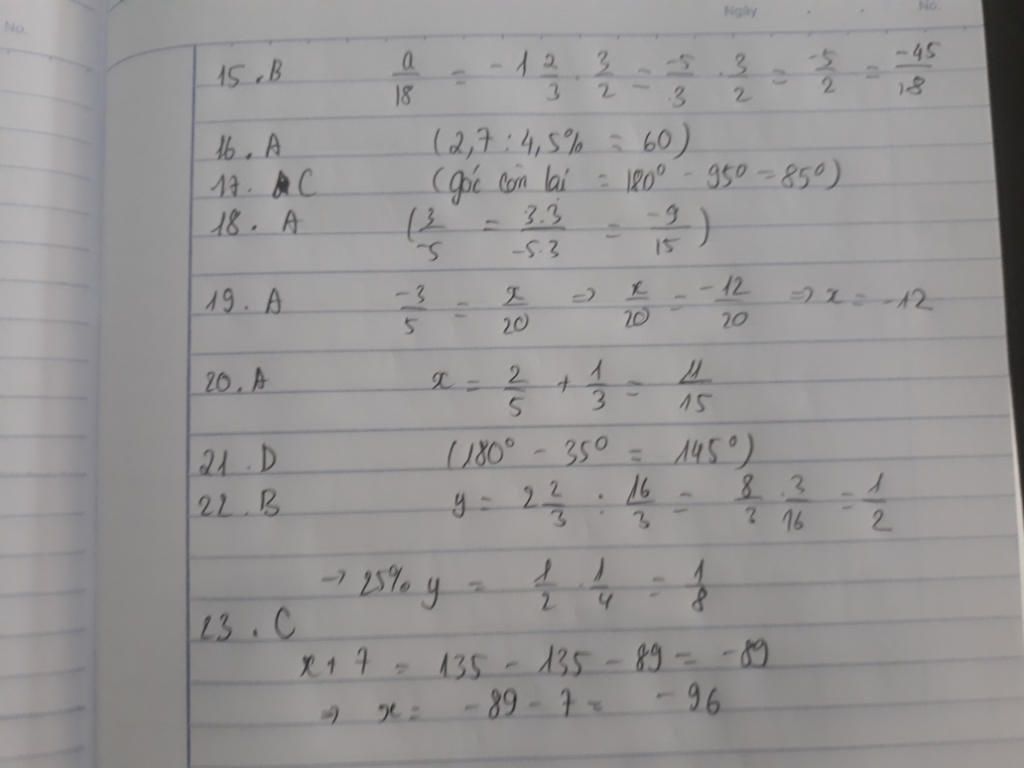 No.
Ngày . . No.
15. B a/18 = -1 2/3 . 3/2 = -5/3 . 3/2 = -5/2 = -45/18
16. A (2,7 : 4,5% = 60)
17. C (góc còn lại = 180° - 95° = 85°)
18. A (3/-5 = 3.3/-5.3 = -9/15)
19. A -3/5 = x/20 => x/20 = -12/20 => x = -12
20. A x = 2/5 + 1/3 = 11/15
21. D (180° - 35° = 145°)
22. B y = 2 2/3 : 16/3 = 8/3 . 3/16 = 1/2
→ 25% y = 1/2 . 1/4 = 1/8
23. C
x + 7 = 135 - 135 - 89 = -89
=> x = -89 - 7 = -96